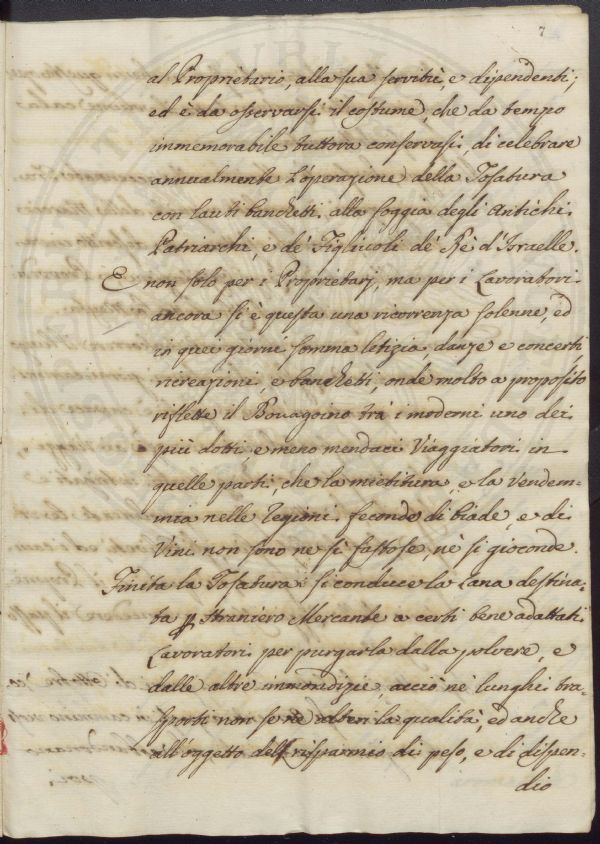 7
al Proprietario, alla sua servitù, e dipendenti;
ed è da osservarsi il costume, che da tempo
immemorabile tuttora conservasi, di celebrare
annualmente l'operazione della Tosatura
con lauti banchetti alla foggia degli Antichi
Patriarchi, e de' Figliuoli de' Rè d'Israelle.
E non solo per i Proprietarj, ma per i Lavoratori
ancora si è questa una ricorrenza solenne, ed
in quei giorni somma letizia, danze e concerti,
ricreazioni, e banchetti, onde molto a proposito
riflette il Bouagoino trà i moderni uno dei
più dotti e meno mendaci Viaggiatori in
quelle parti, che la mietitura, e la Vendem-
mia nelle Regioni feconde di biade, e di
Vini non sono ne si fastose, nè si gioconde.
Finita la Tosatura si conduce la Lana destina-
ta p Straniero Mercante a certi bene adattati
Lavoratori per purgarla dalla polvere, e
dalle altre immondizie, acciò nè lunghi tra-
sporti non se ne alteri la qualità, ed anche
all'oggetto del risparmio di peso, e di dispen-
dio